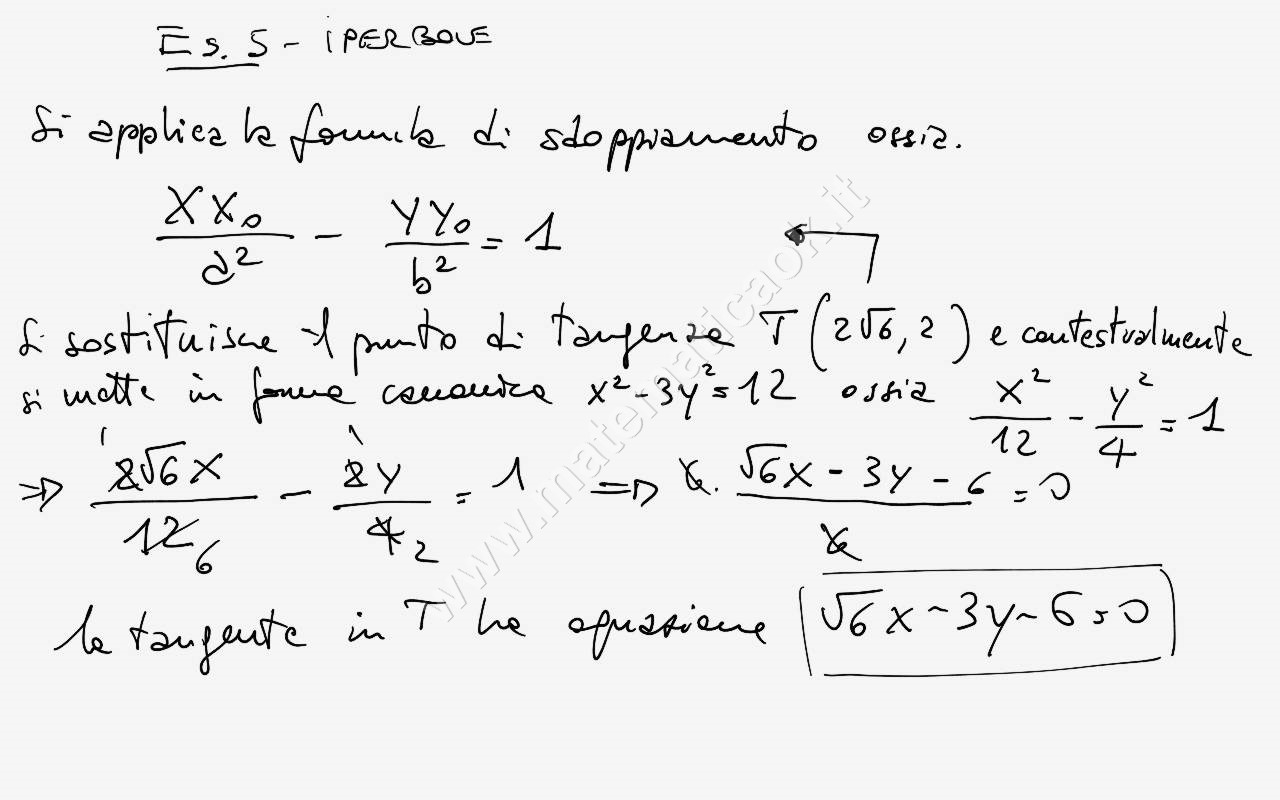 Es. 5 - iPERBOLE
Si applica la formula di sdoppiamento ossia.
XX₀/a² - YY₀/b² = 1
Si sostituisce il punto di tangenza T(2√6, 2) e contestualmente
si mette in forma canonica x² - 3y² = 12 ossia x²/12 - y²/4 = 1
⇒ 2√6X/12 6 - 2y/4 2 = 1 ⇒ 6. √6x - 3y - 6/6 = 0
la tangente in T ha equazione √6x - 3y - 6 = 0
www.matematicaok.it